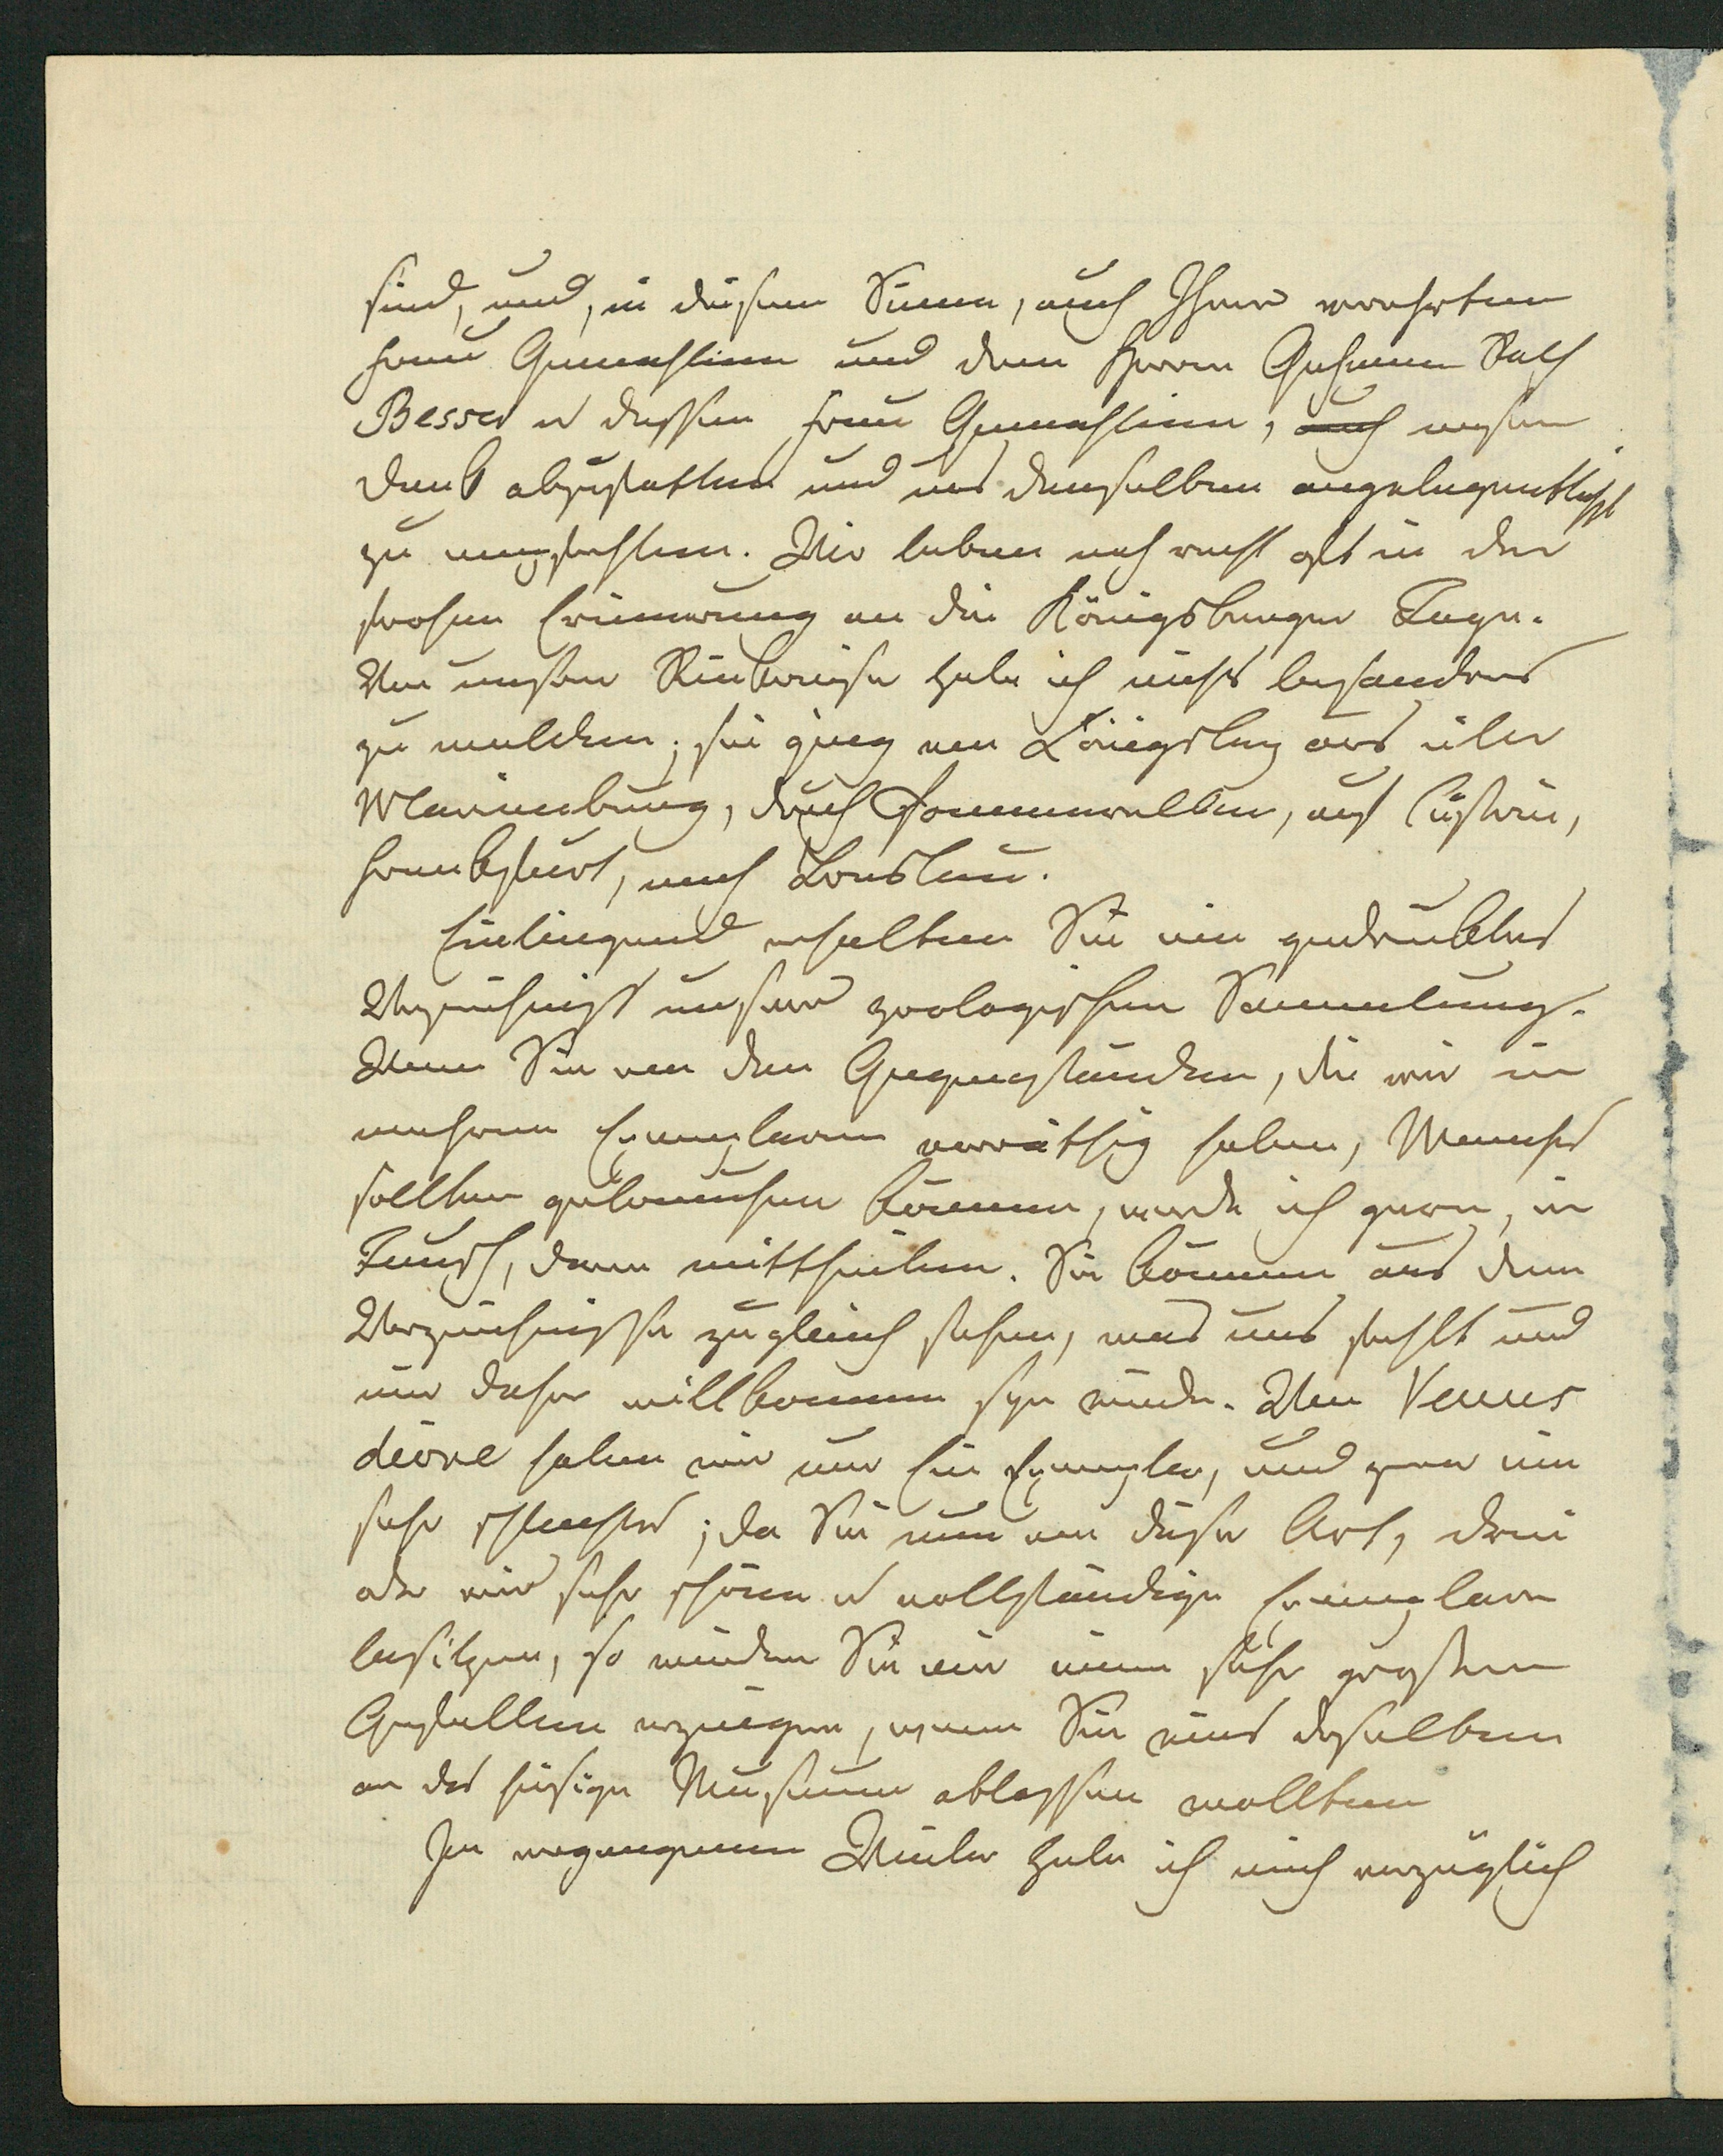 sind, und, in diesem Sinne, auch Ihrer verehrten
Frau Gemahlinn und dem Herrn Geheimen Rath
Besser u dessen Frau Gemahlinn, auch unsern
Dank abzustatten und uns denselben angelegentlichst
zu empfehlen. Wir leben noch recht oft in der
frohen Erinnerung an die Königsberger Tage.
Von unsrer Rückreise habe ich nichts besonders
zu melden; sie ging von Königsberg aus über
Marienburg, durch Pommerellen, auf Cüstrin,
Frankfurt, nach Breslau.
Einliegend erhalten Sie ein gedrucktes
Verzeichniß unserer zoologischen Sammlung.
Wenn Sie von den Gegenständen, die wir in
mehrern Exemplaren vorräthig haben, Manches
sollten gebrauchen können, werde ich gern, in
Tausch, davon mittheilen. Sie können aus dem
Verzeichnisse zugleich sehen, was uns fehlt und
mir daher willkommen seyn würde. Von Venus
dione haben wir nur Ein Exemplar, und zwar ein
sehr schlechtes; da Sie nun von dieser Art, drei
oder vier sehr schöne u vollständige Exemplare
besitzen, so würden Sie mir einen sehr großen
Gefallen erzeigen, wenn Sie eines derselben
an das hiesige Museum ablassen wollten
Im vergangenen Winter habe ich mich vorzüglich